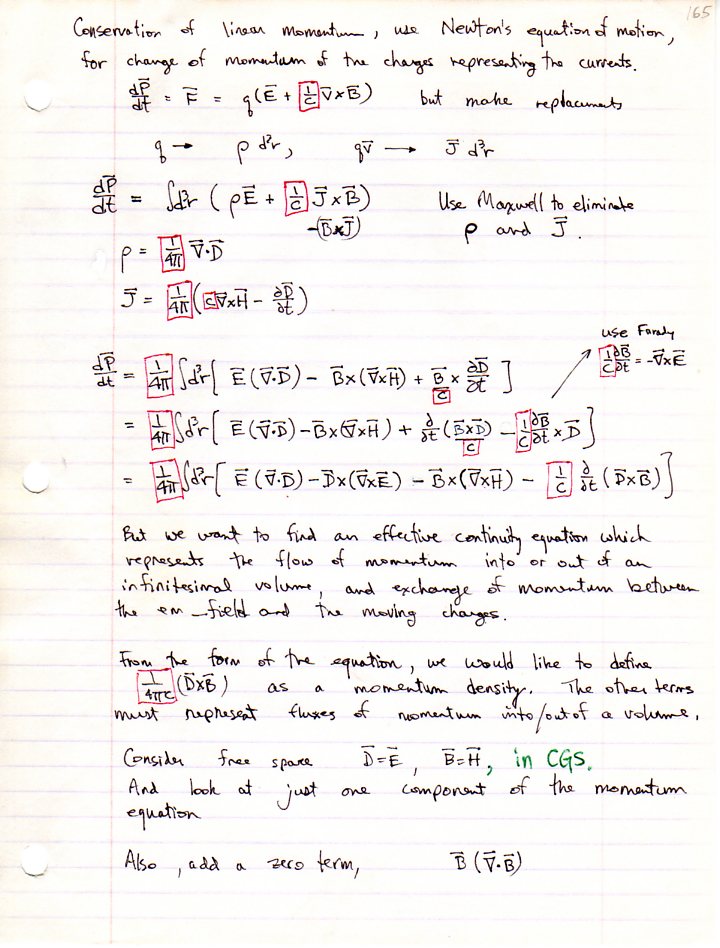 165
Conservation of linear momentum, use Newton's equation of motion,
for change of momentum of the charges representing the currents.
dP⃗/dt = F⃗ = q(E⃗ + 1/c v⃗×B⃗) but make replacements
q → ρ d³r, qv⃗ → J⃗ d³r
dP⃗/dt = ∫d³r (ρE⃗ + 1/c J⃗×B⃗) Use Maxwell to eliminate
-(B⃗×J⃗) ρ and J⃗.
ρ = 1/4π ∇⃗·D⃗
J⃗ = 1/4π (c∇⃗×H⃗ - ∂D⃗/∂t)
use Farady
1/c ∂B⃗/∂t = -∇⃗×E⃗
dP⃗/dt = 1/4π ∫d³r[ E⃗(∇⃗·D⃗) - B⃗×(∇⃗×H⃗) + B⃗/c × ∂D⃗/∂t ]
= 1/4π ∫d³r[ E⃗(∇⃗·D⃗) - B⃗×(∇⃗×H⃗) + ∂/∂t (B⃗×D⃗)/c - 1/c ∂B⃗/∂t × D⃗ ]
= 1/4π ∫d³r[ E⃗(∇⃗·D⃗) - D⃗×(∇⃗×E⃗) - B⃗×(∇⃗×H⃗) - 1/c ∂/∂t (D⃗×B⃗) ]
But we want to find an effective continuity equation which
represents the flow of momentum into or out of an
infinitesimal volume, and exchange of momentum between
the em-field and the moving charges.
From the form of the equation, we would like to define
1/4πc (D⃗×B⃗) as a momentum density. The other terms
must represent fluxes of momentum into/out of a volume.
Consider free space D⃗=E⃗, B⃗=H⃗, in CGS.
And look at just one component of the momentum
equation
Also, add a zero term, B⃗(∇⃗·B⃗)